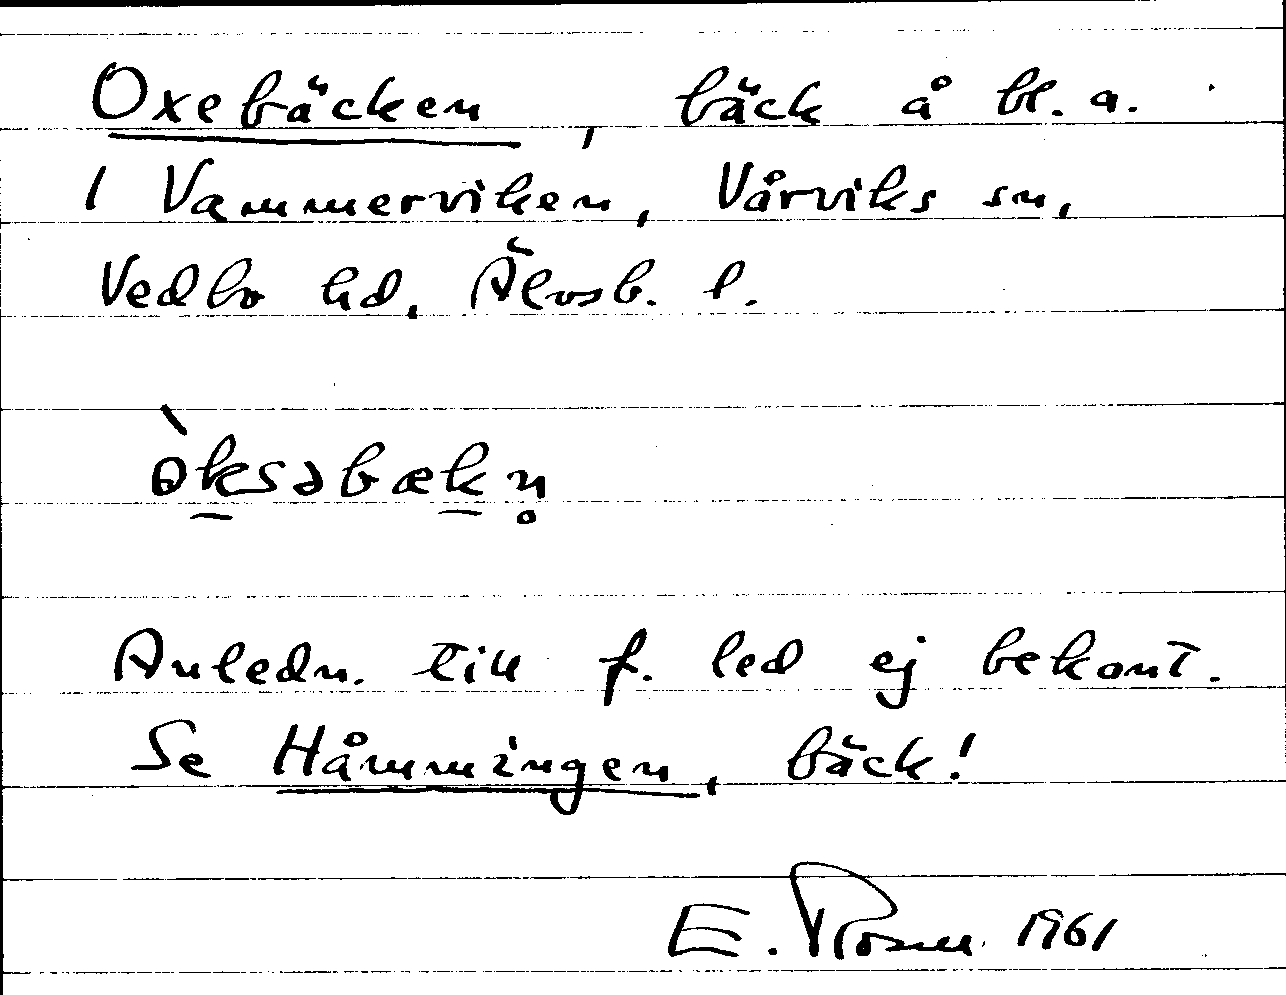 Oxebäcken, bäck å bl. a.
1 Vammerviken, Vårviks sn,
Vedbo hd, Älvsb. l.
ò̀ksəbækn̥
Anledn. till f. led ej bekant.
Se Håmmingen, bäck!
E. Rosen 1961